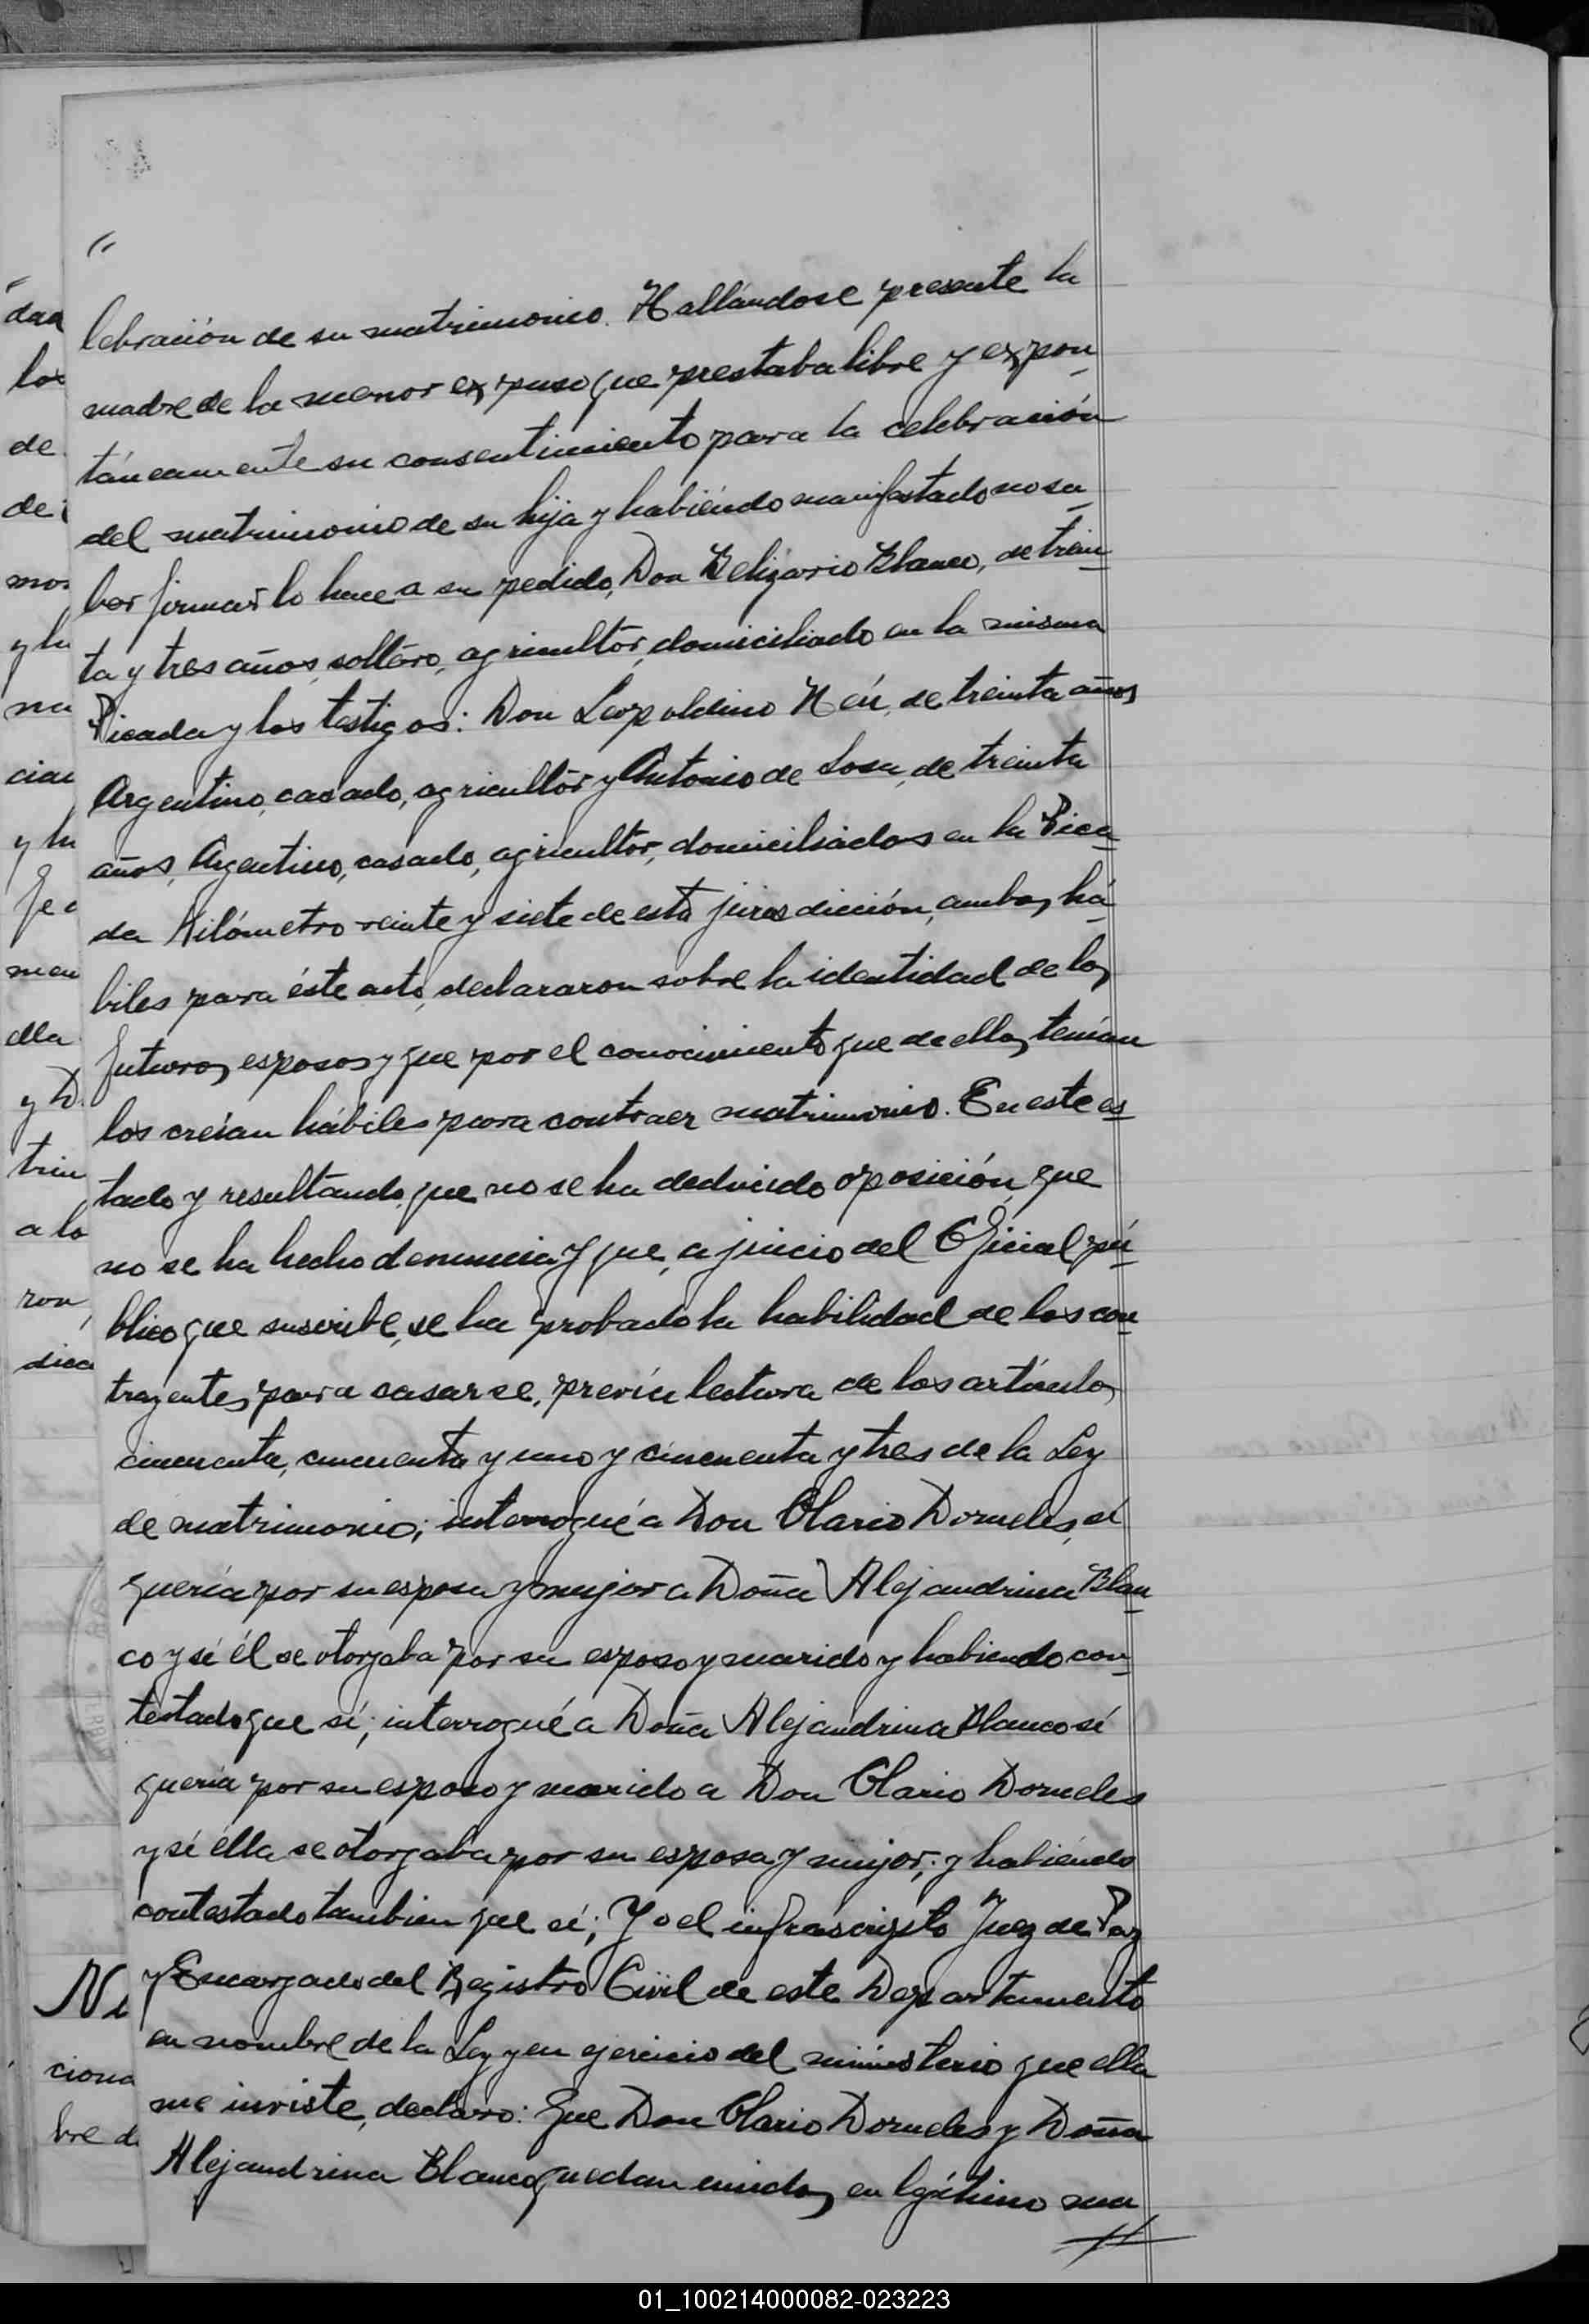 lebración de su matrimonio. Hallándose presente la
madre de la menor expuso que prestaba libre y expon-
táneamente su consentimiento para la celebración
del matrimonio de su hija y habiéndo manifestado no sa-
ber firmar lo hace a su pedido, Don Belizário Blanco, de trein-
ta y tres años, soltéro, agricultór, domiciliado en la misma
Picada y los testigos: Don Leopoldino Neú, de treinta años,
Argentino, casado, agricultór y Antonio de Sosa, de treinta
años, Argentino, casado, agricultor, domiciliados en la Pica-
da Kilómetro veinte y siete de esta jurisdicción, ambos há-
biles para éste acto, declararon sobre la identidad de los
futuros esposos y que por el conocimiento que de ellos tenían
los creían hábiles para contraer matrimonio. En este es-
tado y resultando, que no se ha deducido oposición, que
no se ha hecho denuncia y que, a juicio del Oficial pú-
blico que suscribe, se ha probado la habilidad de los con-
trayentes para casarse, previa lectura de los artículos
cincuenta, cincuenta y uno y cincuenta y tres de la Ley
de matrimonio; interrogué a Don Olario Dorneles, sí
quería por su esposa y mujer a Doña Alejandrina Blan-
co y sí él se otorgaba por su esposo y marido y habiendo con-
testado que sí; interrogué a Doña Alejandrina Blanco sí
quería por su esposo y marido a Don Olario Dorneles
y sí élla se otorgaba por su esposa y mujer; y habiéndo
contestado tambien que sí; Yo el infrascripto Juez de Paz
y Encargado del Registro Civil de este Departamento
en nombre de la Ley y en ejercicio del ministerio que ella
me inviste, declaro: Que Don Olario Dorneles y Doña
Alejandrina Blanco quedan unidos en legítimo ma
//
01_100214000082-023223